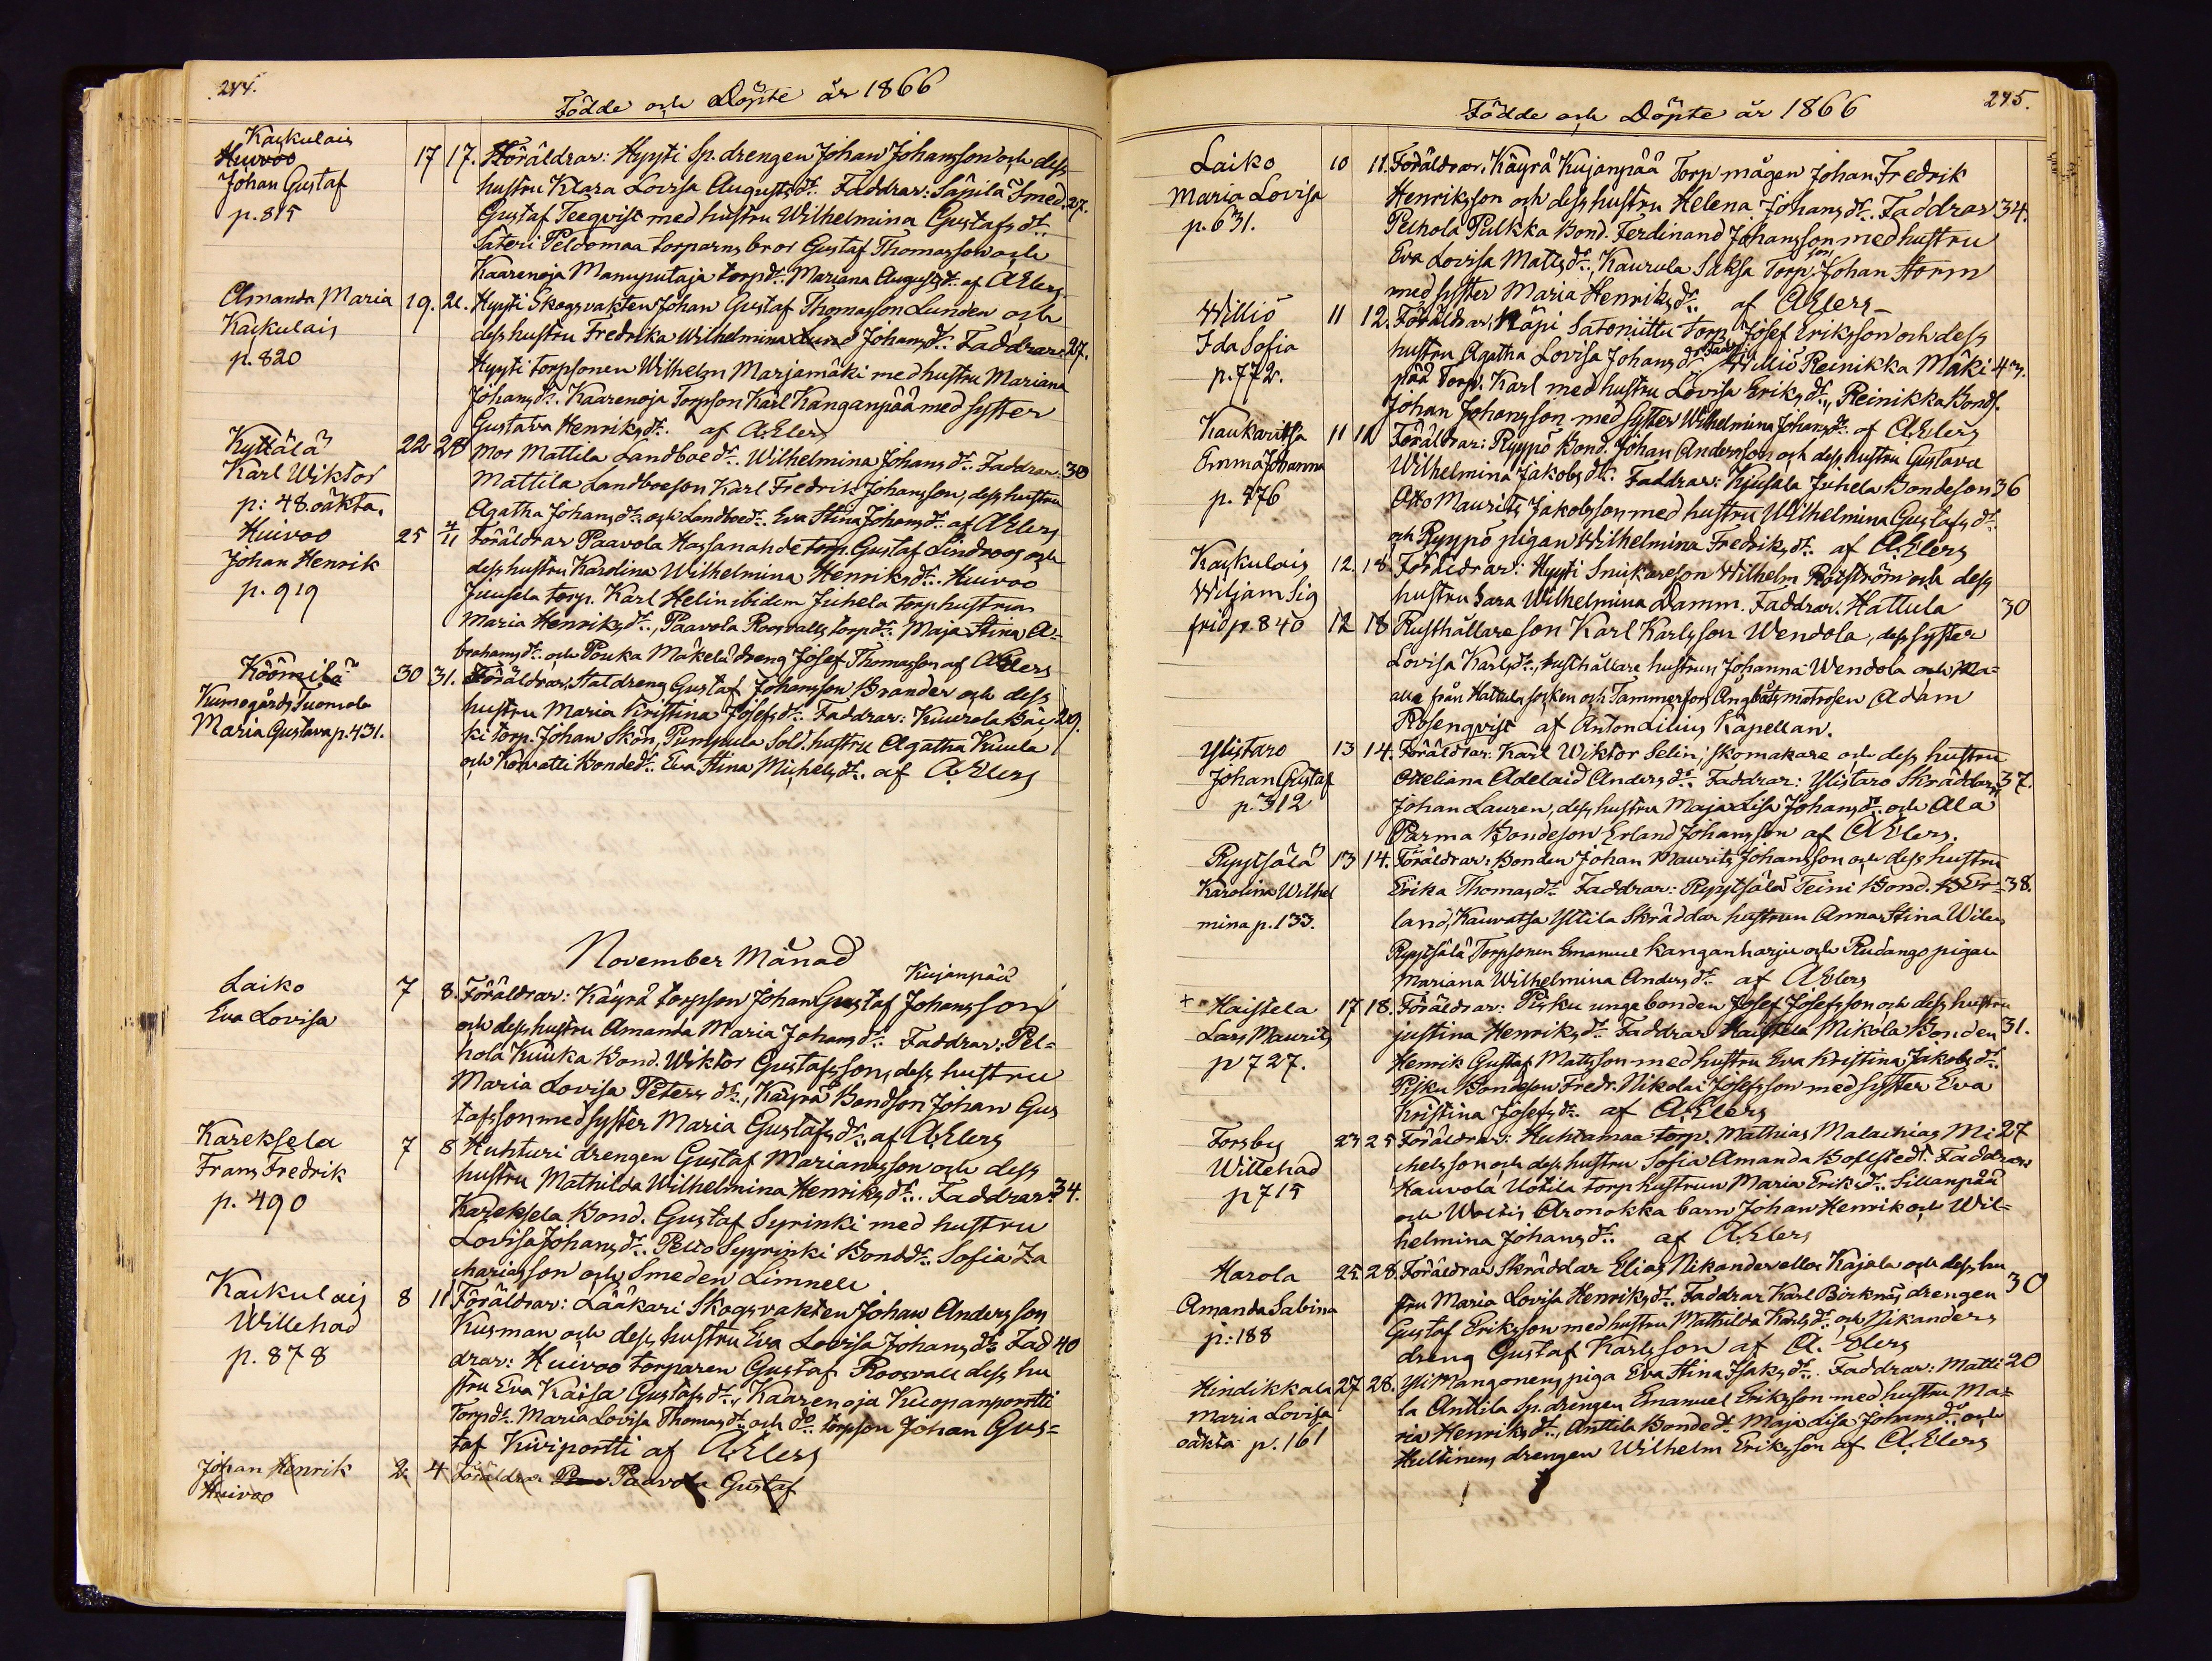 244.
Födde och Döpte år 1866
Kaukulais
Huivoo
Johan Gustaf
p. 815
17 17. Föräldrar: Hyysti Sp. drengen Johan Johansson och dess
hustru Klara Lovisa Augustsdr. Faddrar: Säpilä Smed. 27.
Gustaf Teeqvist med hustru Wilhelmina Gustafsdr.
Säteri Peldomaa torparns bror Gustaf Thomasson och
Kaarenoja Mannputaja torpdr. Mariana Augustsdr. af AElers.
Amanda Maria 19. 21. Hyysti Skogsvakten Johan Gustaf Thomasson Lunden och
Kaukulais
dess hustru Fredrika Wilhelmina Lund Johansdr. Faddrar: 27.
p. 820
Hyysti torpsonen Wilhelm Marjamäki med hustru Mariana
Johansdr. Kaarenoja Torpson Karl Kanganpää med syster
Gustava Henriksdr. af A.Elers
Kyttälä 22 28 Mor Mattila Landboedr. Wilhelmina Johansdr. Faddrar: 30
Karl Wiktor
Mattila Landboeson Karl Fredrik Johansson, dess hustru
p: 48. oäkta.
Agatha Johansdr. och Landboedr. Eva Stina Johansdr. af AElers
Huivoo 25 4/11 Föräldrar Paavola Hassanahde torp. Gustaf Lindroos och
Johan Henrik
dess hustru Karolina Wilhelmina Henriksdr. Huivoo
p. 919
Juusela torp. Karl Helin ibidem Juhela torphustrun
Maria Henriksdr., Paavola Roosvalls torpdr. Maja Stina A-
brahamsdr. och Pouka Mäkelä dreng Josef Thomasson af AElers
Köömilä 30 31. Föräldrar, Staldreng Gustaf Johansson Brander och dess
Kumogårds Tuomola
hustru Maria Kristina Josefsdr. Faddrar: Kuurola Bäi 29.
Maria Gustava p. 431.
ki torp. Johan Skön, Pumpula Sold. hustru Agatha Kuula
och Kouvatti Bondedr. Eva Stina Michelsdr. af A.Elers
November Månad
Laiko 7 8. Föräldrar: Käyrä torpson Johan Gustaf Johansson Kujanpää
Eva Lovisa
och dess hustru Amanda Maria Johansdr. Faddrar: Pel-
hola Kuuka Bond. Wiktor Gustafsson, dess hustru
Maria Lovisa Petersdr., Käyrä Bondson Johan Gus
tafsson med syster Maria Gustafsdr. af A.Elers
Kareksela 7 8 Huhturi drengen Gustaf Mariansson och dess
Frans Fredrik
hustru Mathilda Wilhelmina Henriksdr. Faddrar: 34.
p. 490
Kareksela Bond. Gustaf Syrinki med hustru
Lovisa Johansdr. Pelto Syyrinki Bonddr. Sofia Za
chariasson och Smeden Limnell
Kaukulais 8 11 Föräldrar: Lääkari Skogsvakten Johan Andersson
Willehad
Kusman och dess hustru Eva Lovisa Johansdr. Fad 40
p. 878
drar: Huivoo torparen Gustaf Roosvall dess hu
stru Eva Kaisa Gustafsdr., Kaarenoja Kuopanportti
Torpdr. Maria Lovisa Thomasdr. och do torpson Johan Gus-
taf Kiviportti af A.Elers
Johan Henrik 2. 4 Föräldrar Paavola Gustaf
Huivoo
Födde och Döpte år 1866
245.
Laiko 10 11. Föräldrar. Käyrä Kujanpää Torp mågen Johan Fredrik
Maria Lovisa
Henriksson och dess hustru Helena Johansdr. Faddrar 34.
p. 631.
Pelhola Pulkka Bond. Ferdinand Johansson med hustru
Eva Lovisa Mattsdr., Kaurula Saksa Torp.son Johan Storm
med syster Maria Henriksdr. af AElers
Williö 11 12. Föräldrar. Näpi Satoniittu Torp. Josef Eriksson och dess
Ida Sofia
hustru Agatha Lovisa Johansdr. Fadr: Williö Reinikka Mäki 43.
p. 772.
pää Torp. Karl med hustru Lovisa Eriksdr., Reinikka Bonds.
Johan Johansson med syster Wilhelmina Johansdr. af A.Elers
Kaukaritsa 11 12 Föräldrar: Ryyppö Bond. Johan Andersson och dess hustru Gustava
Emma Johanna
Wilhelmina Jakobsdr. Faddrar: Kjusala Juhela Bondeson 36
p. 476
Otto Maurits Jakobsson med hustru Wilhelmina Gustafsdr.
och Ryyppö pigan Wilhelmina Fredriksdr. af A.Elers
Kaukulais 12. 18. Föräldrar: Hyysti Snickareson Wilhelm Roisström och dess
Wiljam Sig
hustru Sara Wilhelmina Damm. Faddrar. Hattula 30
frid p. 840 12 18 Rusthållare son Karl Karlsson Wendola, dess syster
Lovisa Karlsdr., rusthållare hustrun Johanna Wendola och Ma-
alla från Hattula socken och Tammerfors Ångbåts matrosen Adam
Rosenqvist af Anton Lilius Kapellan.
Ylistaro 13 14. Föräldrar: Karl Wiktor Selin, skomakare och dess hustru
Johan Gustaf
Otteliana Adelaid Andersdr. Faddrar: Ylistaro Skräddarn 37.
p. 312
Johan Lauren, dess hustru Maja Lisa Johansdr. och Ala
Parma Bondeson Erland Johansson af A.Elers.
Ryytsälä 13 14. Föräldrar: Bonden Johan Maurits Johansson och dess hustru
Karolina Wilhel
Erika Thomasdr. Faddrar: Ryytsälä Teini Bond. Er- 38.
mina p. 133.
land, Kauvatsa Yltila Skräddar hustrun Anna Stina Wilen
Ryytsälä Torpsonen Emanuel Kanganharju och Rudango pigan
Mariana Wilhelmina Andersdr. af A.Elers
+ Haistela 17 18. Föräldrar: Pirku unge bonden Josef Josefsson och dess hustru
Lars Maurits
justina Henriksdr. Faddrar Haistila Nikola Bonden 31.
p 727.
Henrik Gustaf Mattsson med hustru Eva Kristina Jakobsdr.
Pirku Bondeson Fredr. Nikolai Josefsson med syster Eva
Kristina Josefsdr. af A.Elers
Forsby 23 25 Föräldrar: Huhtamaa torp. Mathias Malachias Mi 27
Willehad
chelsson och dess hustru Sofia Amanda Bollstedt. Faddrar
p 715
Hauvola Uotila torphustrun Maria Eriksdr. Sillanpää
och Woitis Aronokka barn Johan Henrik och Wil-
helmina Johansdr. af A.Elers
Harola 25 28. Föräldrar Skräddar Elias Nikander eller Kajala och dess hu
Amanda Sabina
stru Maria Lovisa Henriksdr. Faddrar Karl Birknäs drengen 30
p: 188
Gustaf Eriksson med hustru Mathilda Karlsdr. och Nikanders
dreng Gustaf Karlsson af A. Elers
Hindikkala 27 28. Yli Mangonens piga Eva Stina Isaksdr. Faddrar: Matti 20
Maria Lovisa
la Anttila Sp. drengen Emanuel Eriksson med hustru Ma-
oäkta p. 161
ria Henriksdr., Anttila Bondedr. Maja Lisa Johansdr. och
Hultinens drengen Wilhelm Eriksson af A.Elers